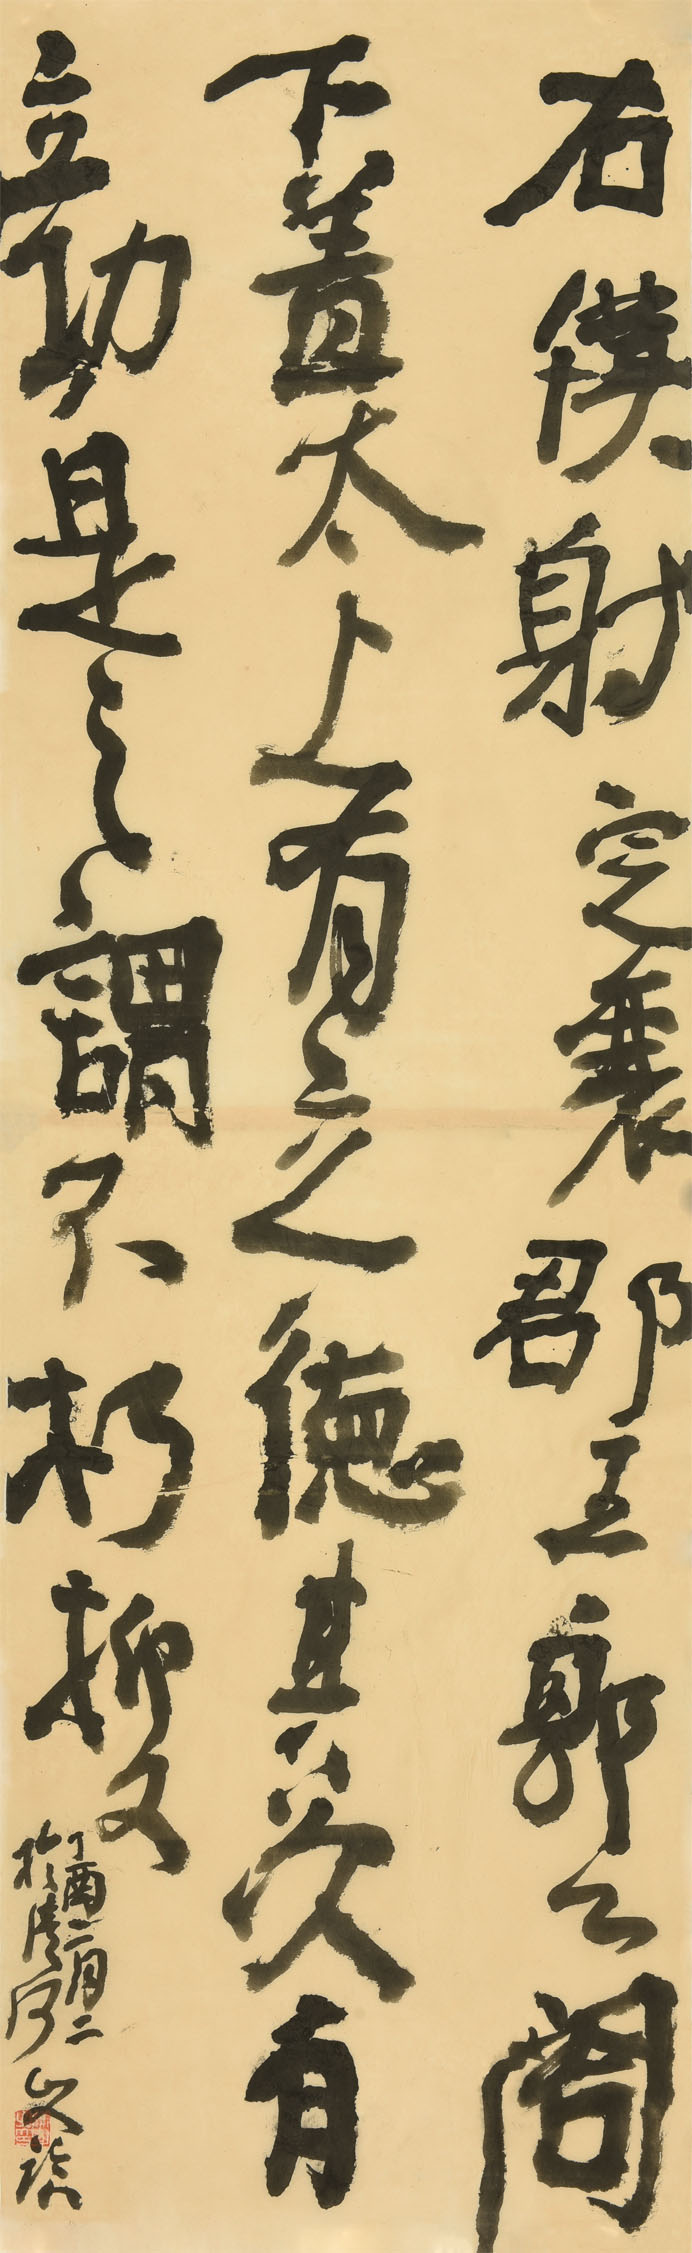 右僕射定襄郡王郭公閣
下蓋太上有立德其次有
立功是之謂不朽抑又
丁酉二月二
於清河